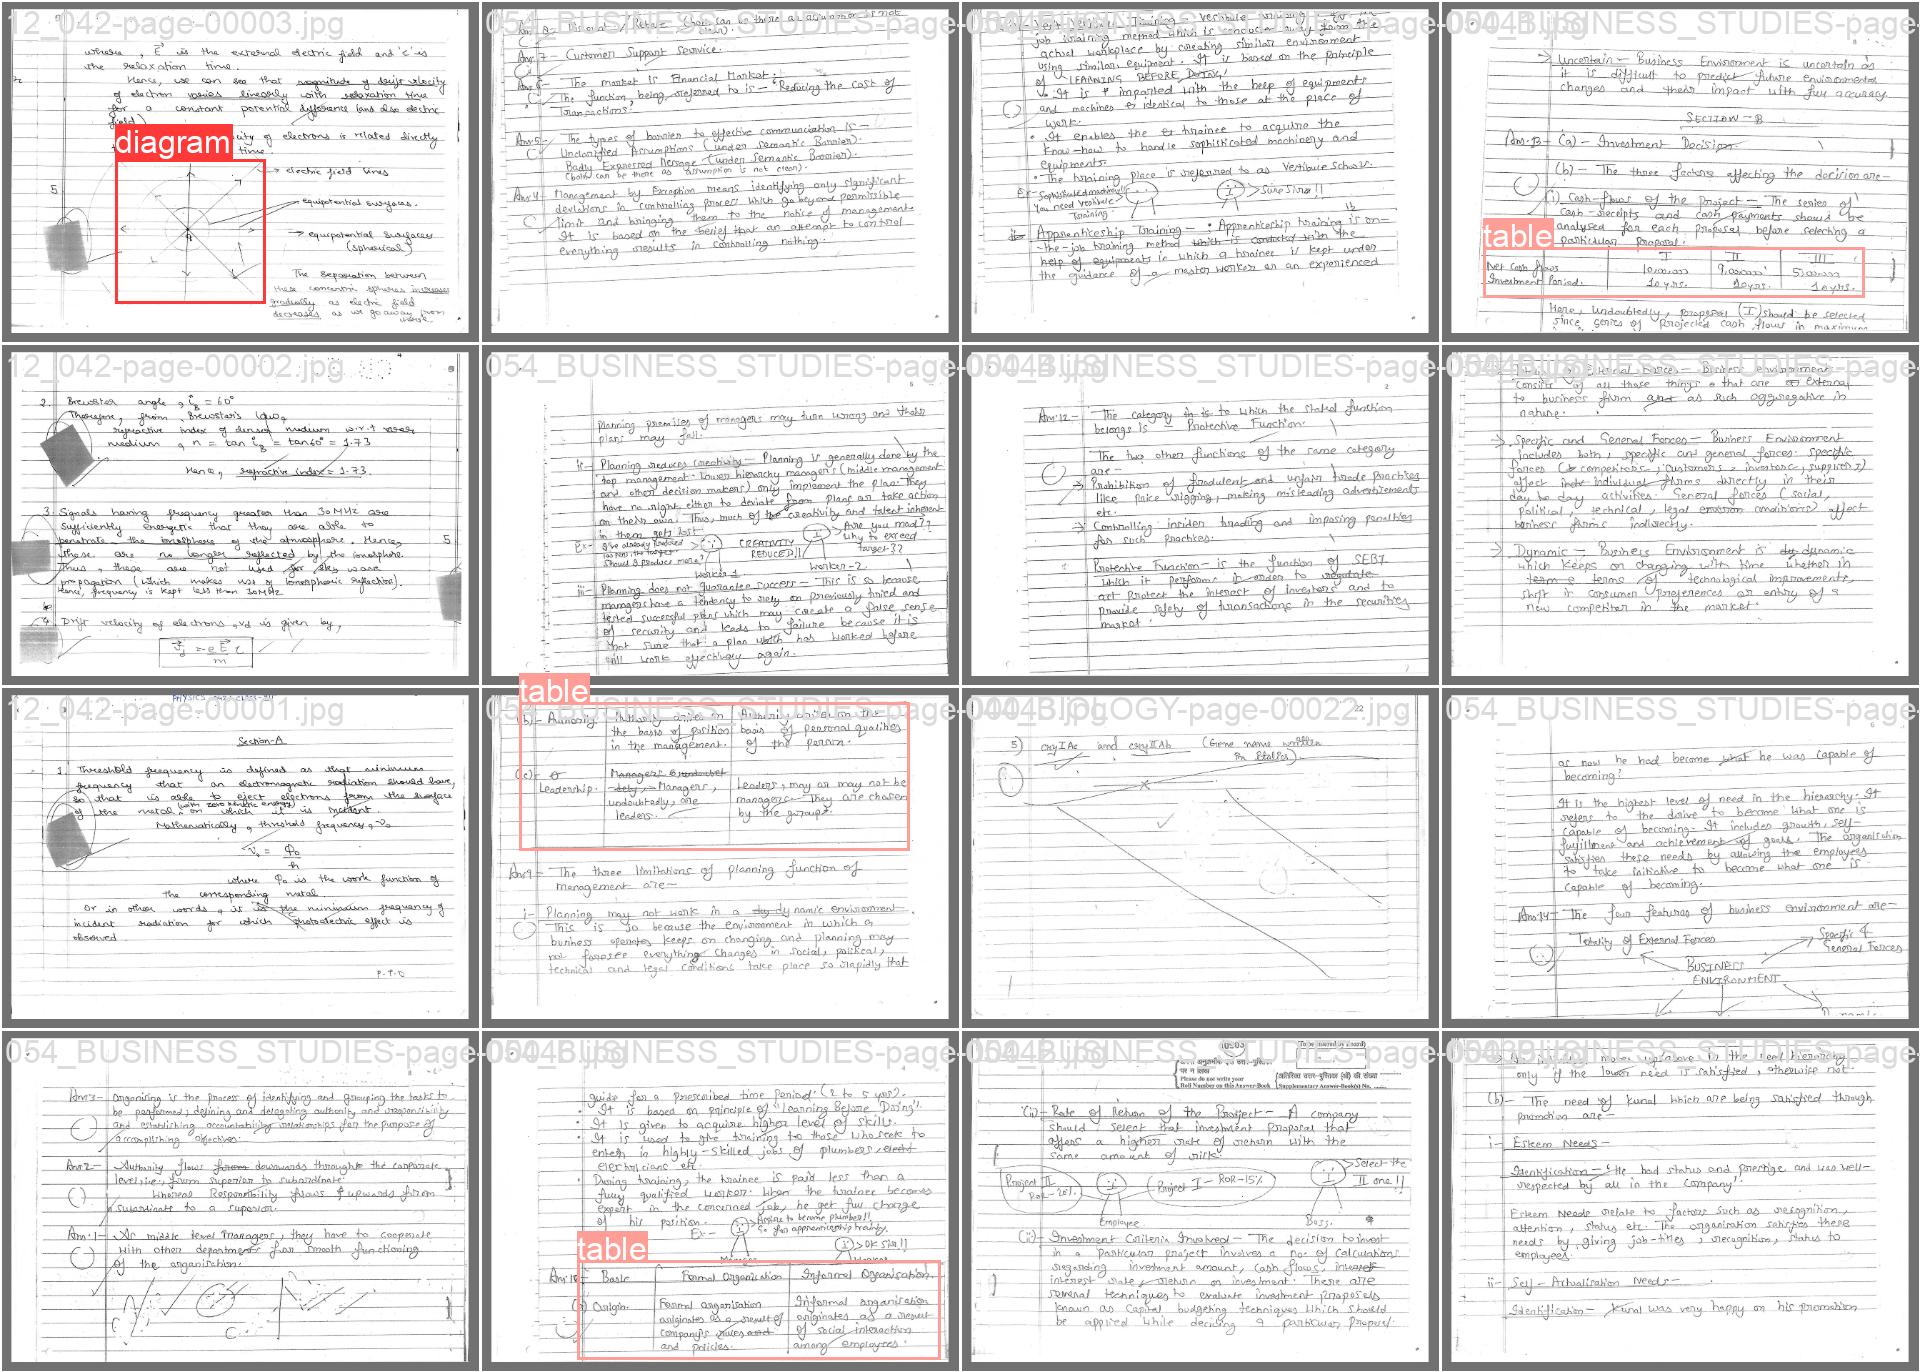 12_042-page-00003.jpg
where, E is the external electric field and 'c' is
the relaxation time.
Hence, we can see that magnitude of drift velocity
of electron varies linearly with relaxation time
for a constant potential difference (and also electric
field)
city of electrons is related directly
time.
diagram
electric field lines
equipotential surfaces.
equipotential surfaces
(spherical)
The separation between
these concentric spheres increases
gradually as electric field
decreases as we go away from
5
054_BUSINESS_STUDIES-page-
Ans-7- Customer Support Service.
Ans-6- The market is Financial Market.
The function, being referred to is - "Reducing the cost of
Transactions."
Ans-5- The types of barrier to effective communication is-
Unclarified Assumptions (under Semantic Barrier).
Badly Expressed Message (under Semantic Barrier).
(both can be there as assumption is not clear).
Ans-4- Management by Exception means identifying only significant
deviations in controlling process which go beyond permissible
limit and bringing them to the notice of management.
It is based on the belief that an attempt to control
everything results in controlling nothing.
job training method which is conducted away from the
actual workplace by creating similar environment
using similar equipment. It is based on the principle
of "LEARNING BEFORE DOING".
It is imparted with the help of equipments
and machines identical to those at the place of
work.
It enables the trainee to acquire the
know-how to handle sophisticated machinery and
equipments.
The training place is referred to as Vestibule School.
Sophisticated machine!!
You need vestibule
Training
Sure Sir!!
Apprenticeship Training - Apprenticeship training is on-
the-job training method which is conducted with the
help of equipments in which a trainee is kept under
the guidance of a master worker or an experienced
Uncertain- Business Environment is uncertain as
it is difficult to predict future environmental
changes and their impact with full accuracy.
SECTION-B
Ans-13- (a)- Investment Decision.
(b)- The three factors affecting the decision are-
(i) Cash-flows of the Project - The series of
cash-receipts and cash payments should be
analysed for each proposal before selecting a
particular proposal.
table
I II III
Net Cash flows
Investment Period. 10yrs. 10yrs. 10yrs.
Here, undoubtedly, proposal (I) should be selected
since series of projected cash flows in maximum
12_042-page-00002.jpg
2. Brewster angle, iB = 60°
Therefore, from Brewster's law,
refractive index of denser medium w.r.t rarer
medium, n = tan iB = tan60° = 1.73
Hence, refractive index = 1.73.
3. Signals having frequency greater than 30MHz are
sufficiently energetic that they are able to
penetrate the ionosphere of the atmosphere. Hence,
these are no longer reflected by the ionosphere.
Thus, these are not used for sky wave
propagation (which makes use of ionospheric reflection).
Hence, frequency is kept less than 30MHz
5
4. Drift velocity of electrons, vd is given by,
vd = -eE τ
m
054_BUSINESS_STUDIES-page-
Planning premises of managers may turn wrong and their
plans may fail.
ii- Planning reduces creativity- Planning is generally done by the
top management. Lower hierarchy mangers (middle management
and other decision makers) only implement the plan. They
have no right either to deviate from plans or take action
on their own. Thus, much of the creativity and talent inherent
in them gets lost.
Ex- I've already produced
Should I produce more?
CREATIVITY
REDUCED!!
Are you mad??
Why to exceed
target??
Worker-1
Worker-2
iii- Planning does not guarantee success- This is so because
managers have a tendency to rely on previously tried and
tested successful plans which may create a false sense
of security and leads to failure because it is
not sure that a plan which has worked before
will work effectively again.
2
Ans-12- The category in is to which the stated function
belongs is - Protective Function.
The two other functions of the same category
are-
Prohibition of fradulent and unfair trade practices
like price rigging, making misleading advertisements
etc.
Controlling insider trading and imposing penalties
for such practices.
Protective Function- is the function of SEBI
which it performs in order to regulate
act protect the interest of investors and to
provide safety of transactions in the securities
market.
consist of all those things that are external
to business firm and as such aggregative in
nature.
Specific and General Forces- Business Environment
includes both, specific and general forces. Specific
forces (competitors, customers, investors, suppliers)
affect individual firms directly in their
day to day activities. General forces (social,
political, technical, legal conditions) affect
business firms indirectly.
Dynamic- Business Environment is dynamic
which keeps on changing with time whether in
terms of technological improvements,
shift in consumer preferences or entry of a
new competitor in the market.
12_042-page-00001.jpg
Section-A
1. Threshold frequency is defined as that minimum
frequency that an electromagnetic radiation should have,
so that is able to eject electrons from the surface
(with zero kinetic energy)
of the metal on which it is incident.
Mathematically, threshold frequency, ν₀
ν₀ = ϕ₀
h
where ϕ₀ is the work function of
the corresponding metal
Or in other words, it is the minimum frequency of
incident radiation for which photoelectric effect is
observed.
P.T.O
table
(b)- Authority. Authority arises on the basis of position in the management. Authority arises on the basis of personal qualities of the person.
(c)- Leadership. Managers undoubtedly, Managers, undoubtedly, are leaders. Leaders, may or may not be managers. They are chosen by the groups.
Ans-9- The three limitations of planning function of
management are-
i- Planning may not work in a dynamic environment
This is so because the environment in which a
business operates keeps on changing and planning may
not foresee everything. Changes in social, political,
technical and legal conditions take place so rapidly that
044_BIOLOGY-page-00022.jpg
22
5) cryIAc and cryIIAb (Gene name written
in italics)
054_BUSINESS_STUDIES-page-
as now he had become what he was capable of
becoming?
It is the highest level of need in the hierarchy. It
refers to the drive to become what one is
capable of becoming. It includes growth, self-
fulfillment and achievement of goals. The organisation
satisfies these needs by allowing the employees
to take initiative to become what one is
capable of becoming.
Ans-14- The four features of business environment are-
Totality of External Forces
Specific &
General Forces
BUSINESS
ENVIRONMENT
054_BUSINESS_STUDIES-page-
Ans-3- Organising is the process of identifying and grouping the tasks to
be performed, defining and delegating authority and responsibility
and establishing accountability relationships for the purpose of
accomplishing objectives.
Ans-2- Authority flows from downwards through the corporate
level i.e., from superior to subordinate.
Whereas Responsibility flows upwards from
subordinate to a superior.
Ans-1- As middle level managers, they have to cooperate
with other departments for smooth functioning
of the organisation.
guide for a prescribed time period. (2 to 5 years).
It is based on principle of "Learning Before Doing".
It is given to acquire higher level of skills.
It is used to give training to those who seek to
enter in highly-skilled jobs of plumbers,
electricians etc.
During training, the trainee is paid less than a
fully qualified worker. When the trainee becomes
expert in the concerned job, he get full charge
of his position.
Ex-
Desire to become plumber!!
Go for apprenticeship training.
Ok Sir!!
table
Ans-10- Basic Formal Organisation Informal Organisation.
(a) Origin. Formal organisation originates as a result of company's rules and policies. Informal organisation originates as a result of social interaction among employees.
Please do not write your
Roll Number on this Answer-Book
Supplementary Answer-Book(s) No.
(ii)- Rate of Return of the Project- A company
should select that investment proposal that
offers a higher rate of return with the
same amount of risk.
Project II
ROR-20%
Project I- ROR-15%
Select the
II one!!
Employee
Boss.
(iii)- Investment Criteria Involved- The decision to invest
in a particular project involves a no. of calculations
regarding investment amount, cash flows,
interest rate, return on investment. There are
several techniques to evaluate investment proposals
known as Capital budgeting techniques which should
be applied while deciding a particular proposal.
only if the lower need is satisfied, otherwise not.
(b)- The need of Kunal which are being satisfied through
promotion are-
i- Esteem Needs-
Identification- "He had status and prestige and was well-
respected by all in the Company".
Esteem Needs relate to factors such as recognition,
attention, status etc. The organisation satisfies these
needs by giving job-titles, recognition, status to
employees.
ii- Self-Actualisation Needs-
Identification- Kunal was very happy on his promotion